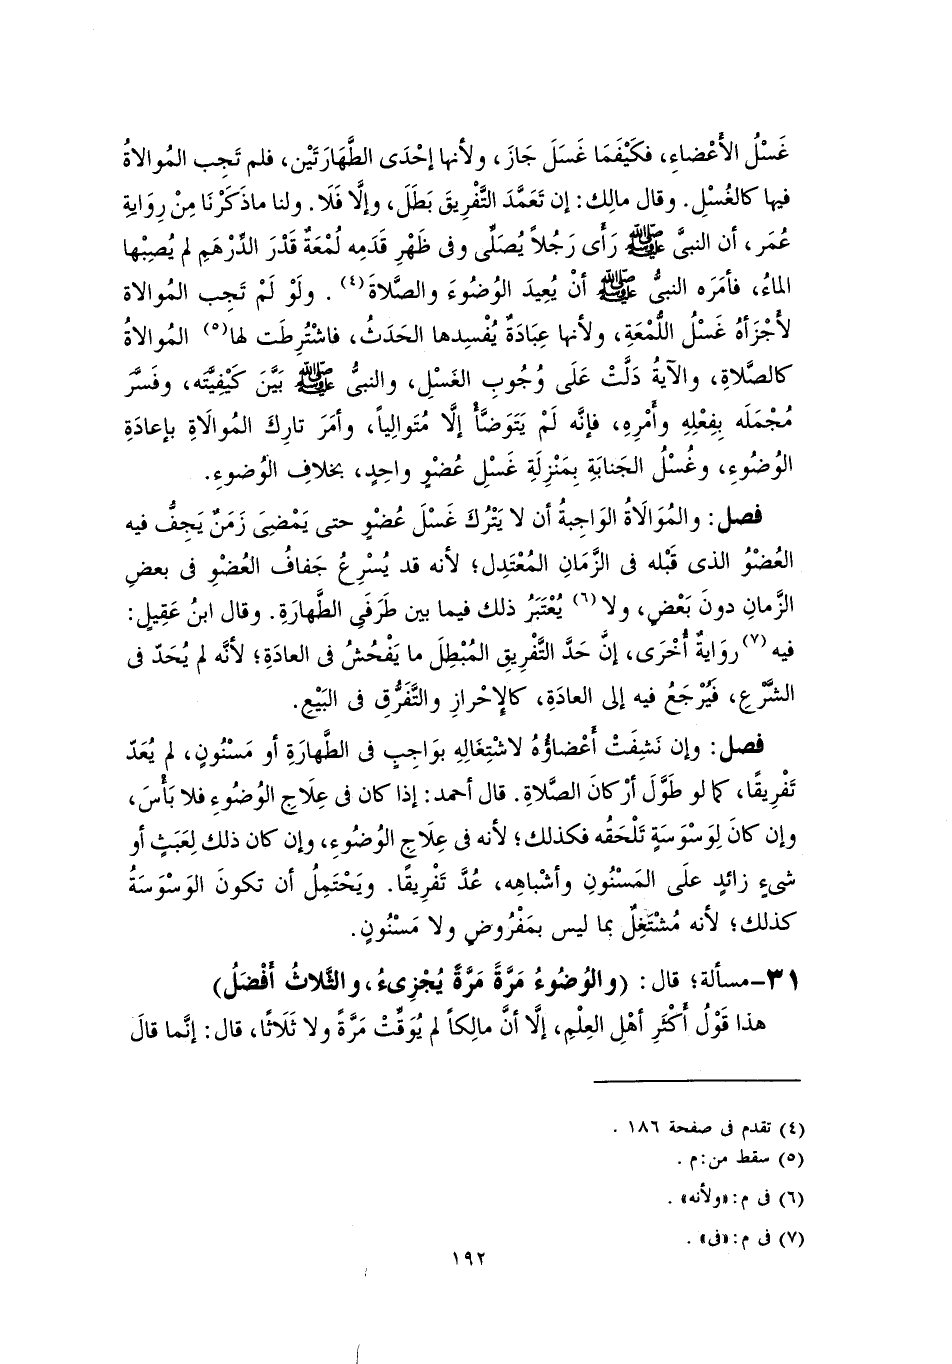 غَسْلُ الأَعْضاءِ، فكَيْفَمَا غَسَل جَازَ، ولأنها إحْدَى الطَّهَارَتَيْن، فلم تَجِب المُوالاةُ
فيها كالغُسْلِ. وقال مالك: إن تَعَمَّدَ التَّفْرِيقَ بَطَلَ، وإلَّا فَلَا. ولنا ماذكَرْنَا مِنْ رِوَايةِ
عُمَر، أن النبىَّ ﷺ رَأَى رَجُلاً يُصَلِّى وفى ظَهْرِ قَدَمِه لُمْعَةٌ قَدْرَ الدِّرْهَمِ لم يُصِبْها
الماءُ، فأمَرَه النبىُّ ﷺ أنْ يُعِيدَ الوُضُوءَ والصَّلاةَ(٤) . ولَوْ لَمْ تَجِب المُوالاة
لأَجْزَأهُ غَسْلُ اللُّمْعَةِ، ولأنها عِبَادَةٌ يُفْسِدها الحَدَثُ، فاشْتُرِطَت لها(٥) المُوالاةُ
كالصَّلاةِ، والآيةُ دَلَّتْ عَلَى وُجُوبِ الغَسْلِ، والنبىُّ ﷺ بَيَّنَ كَيْفِيَّتَه، وفَسَّرَ
مُجْمَلَه بِفِعْلِهِ وأَمْرِهِ، فإنَّه لَمْ يَتَوَضَّأْ إلَّا مُتَوالِياً، وأمَرَ تارِكَ المُوالَاةِ بإعادَةِ
الوُضُوءِ، وغُسْلُ الجَنابَةِ بِمَنْزِلَةِ غَسْلِ عُضْوٍ واحِدٍ، بخلافِ الوُضوءِ.
فصل: والمُوَالَاةُ الوَاجِبةُ أن لا يَتْرُكَ غَسْلَ عُضْوٍ حتى يَمْضِىَ زَمَنٌ يَجِفُّ فيه
العُضْوُ الذى قَبْلَه فى الزَّمانِ المُعْتَدِل؛ لأنه قد يُسْرِعُ جَفافُ العُضْوِ فى بعضِ
الزَّمانِ دونَ بَعْضٍ، ولا(٦) يُعْتَبَرُ ذلك فيما بين طَرَفَىِ الطَّهارَةِ. وقال ابنُ عَقِيلٍ:
فيه(٧) رِوَايةٌ أُخْرَى، إنَّ حَدَّ التَّفْرِيقِ المُبْطِلَ ما يَفْحُشُ فى العادَةِ؛ لأنَّه لم يُحَدّ فى
الشَّرْعِ، فَيُرْجَعُ فيه إلى العادَةِ، كالإحْرازِ والتَّفَرُّقِ فى البَيْعِ.
فصل: وإن نَشِفَتْ أَعْضاؤُهُ لاشْتِغَالِهِ بوَاجِبٍ فى الطَّهارَةِ أو مَسْنُونٍ، لم يُعَدّ
تَفْرِيقًا، كما لو طَوَّلَ أرْكانَ الصَّلاةِ. قال أحمد: إذا كان فى عِلَاجِ الوُضُوءِ فلا بَأْسَ،
وإن كانَ لِوَسْوَسَةٍ تَلْحَقُه فكذلك؛ لأنه فى عِلَاجِ الوُضُوءِ، وإن كان ذلك لِعَبَثٍ أو
شىءٍ زائدٍ علَى المَسْنُونِ وأشْباهِه، عُدَّ تَفْرِيقًا. ويَحْتَمِلُ أن تكونَ الوَسْوَسَةُ
كذلك؛ لأنه مُشْتَغِلٌ بما ليس بمَفْرُوضٍ ولا مَسْنُونٍ.
٣١-مسألة؛ قال: (والوُضُوءُ مَرَّةً مَرَّةً يُجْزِىءُ، والثَّلاثُ أَفْضَلُ)
هذا قَوْلُ أَكْثَرِ أهْلِ العِلْمِ، إلَّا أنَّ مالِكاً لم يُوَقِّتْ مَرَّةً ولا ثَلَاثًا، قال: إنَّما قالَ
(٤) تقدم فى صفحة ١٨٦ .
(٥) سقط من: م .
(٦) فى م: «ولأنه» .
(٧) فى م: «فى» .
١٩٢